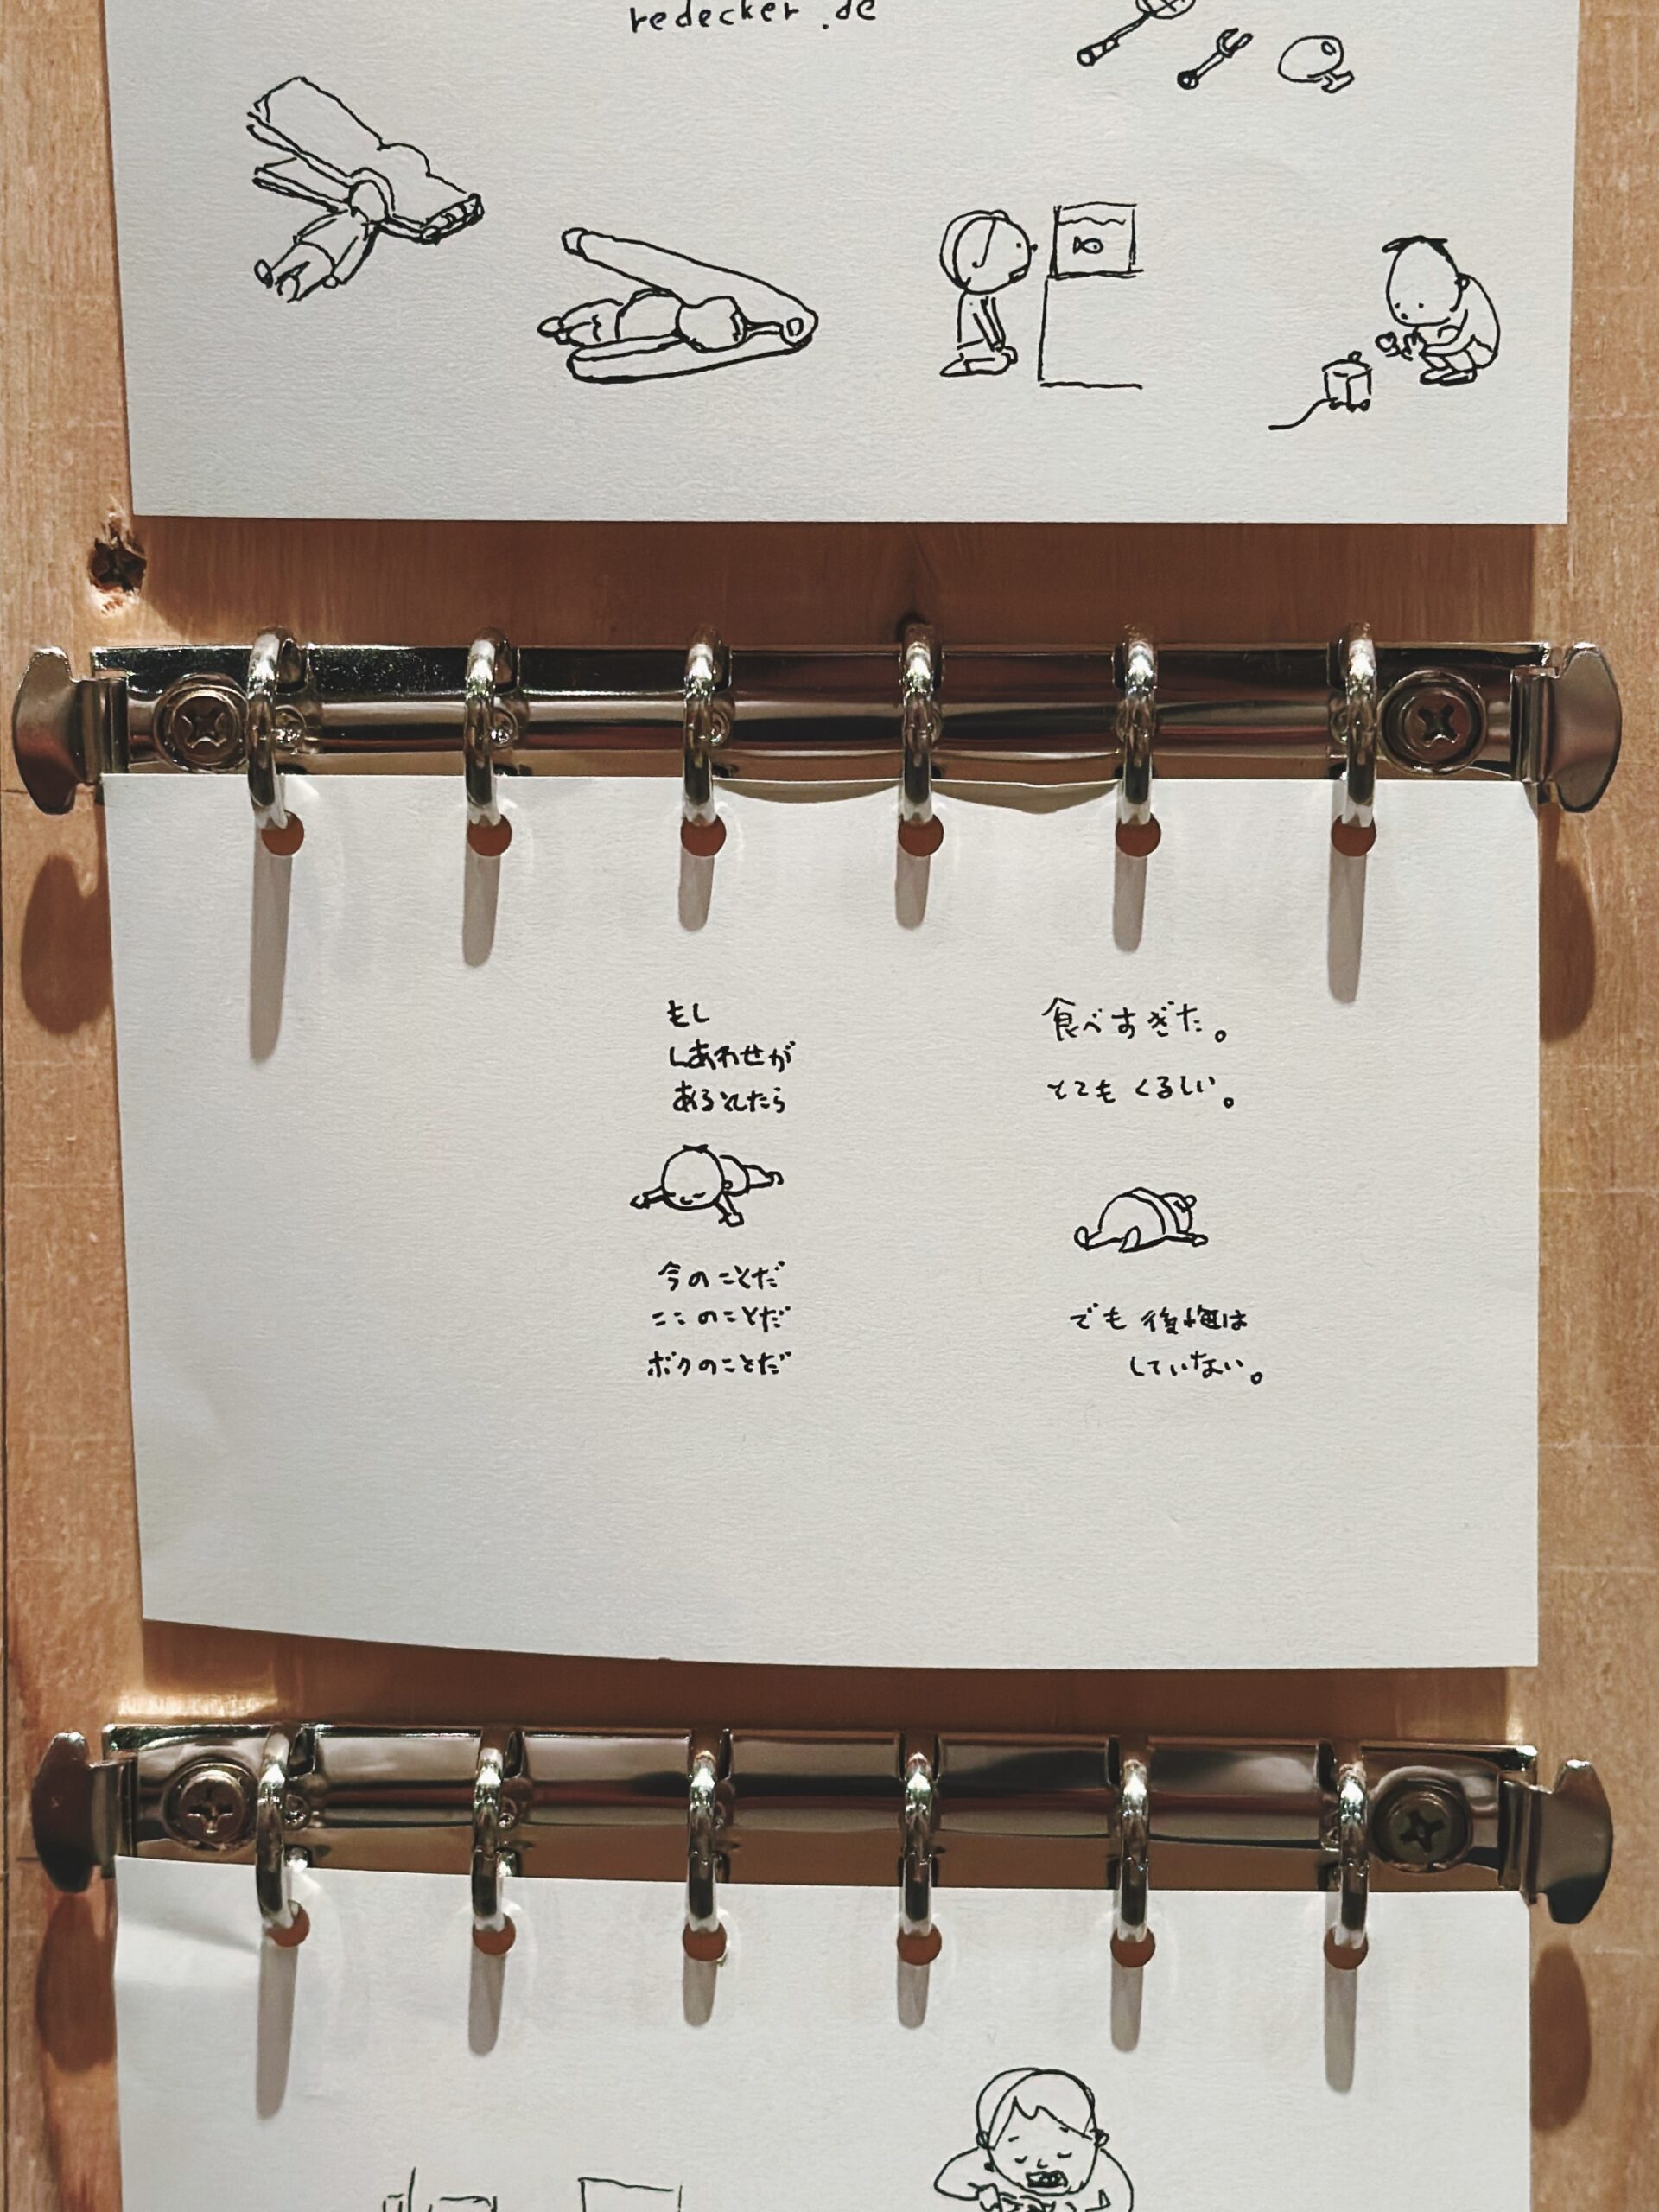 redecker.de
もし
しあわせが
あるとしたら
今のことだ
ここのことだ
ボクのことだ
食べすぎた。
とてもくるしい。
でも後悔は
していない。